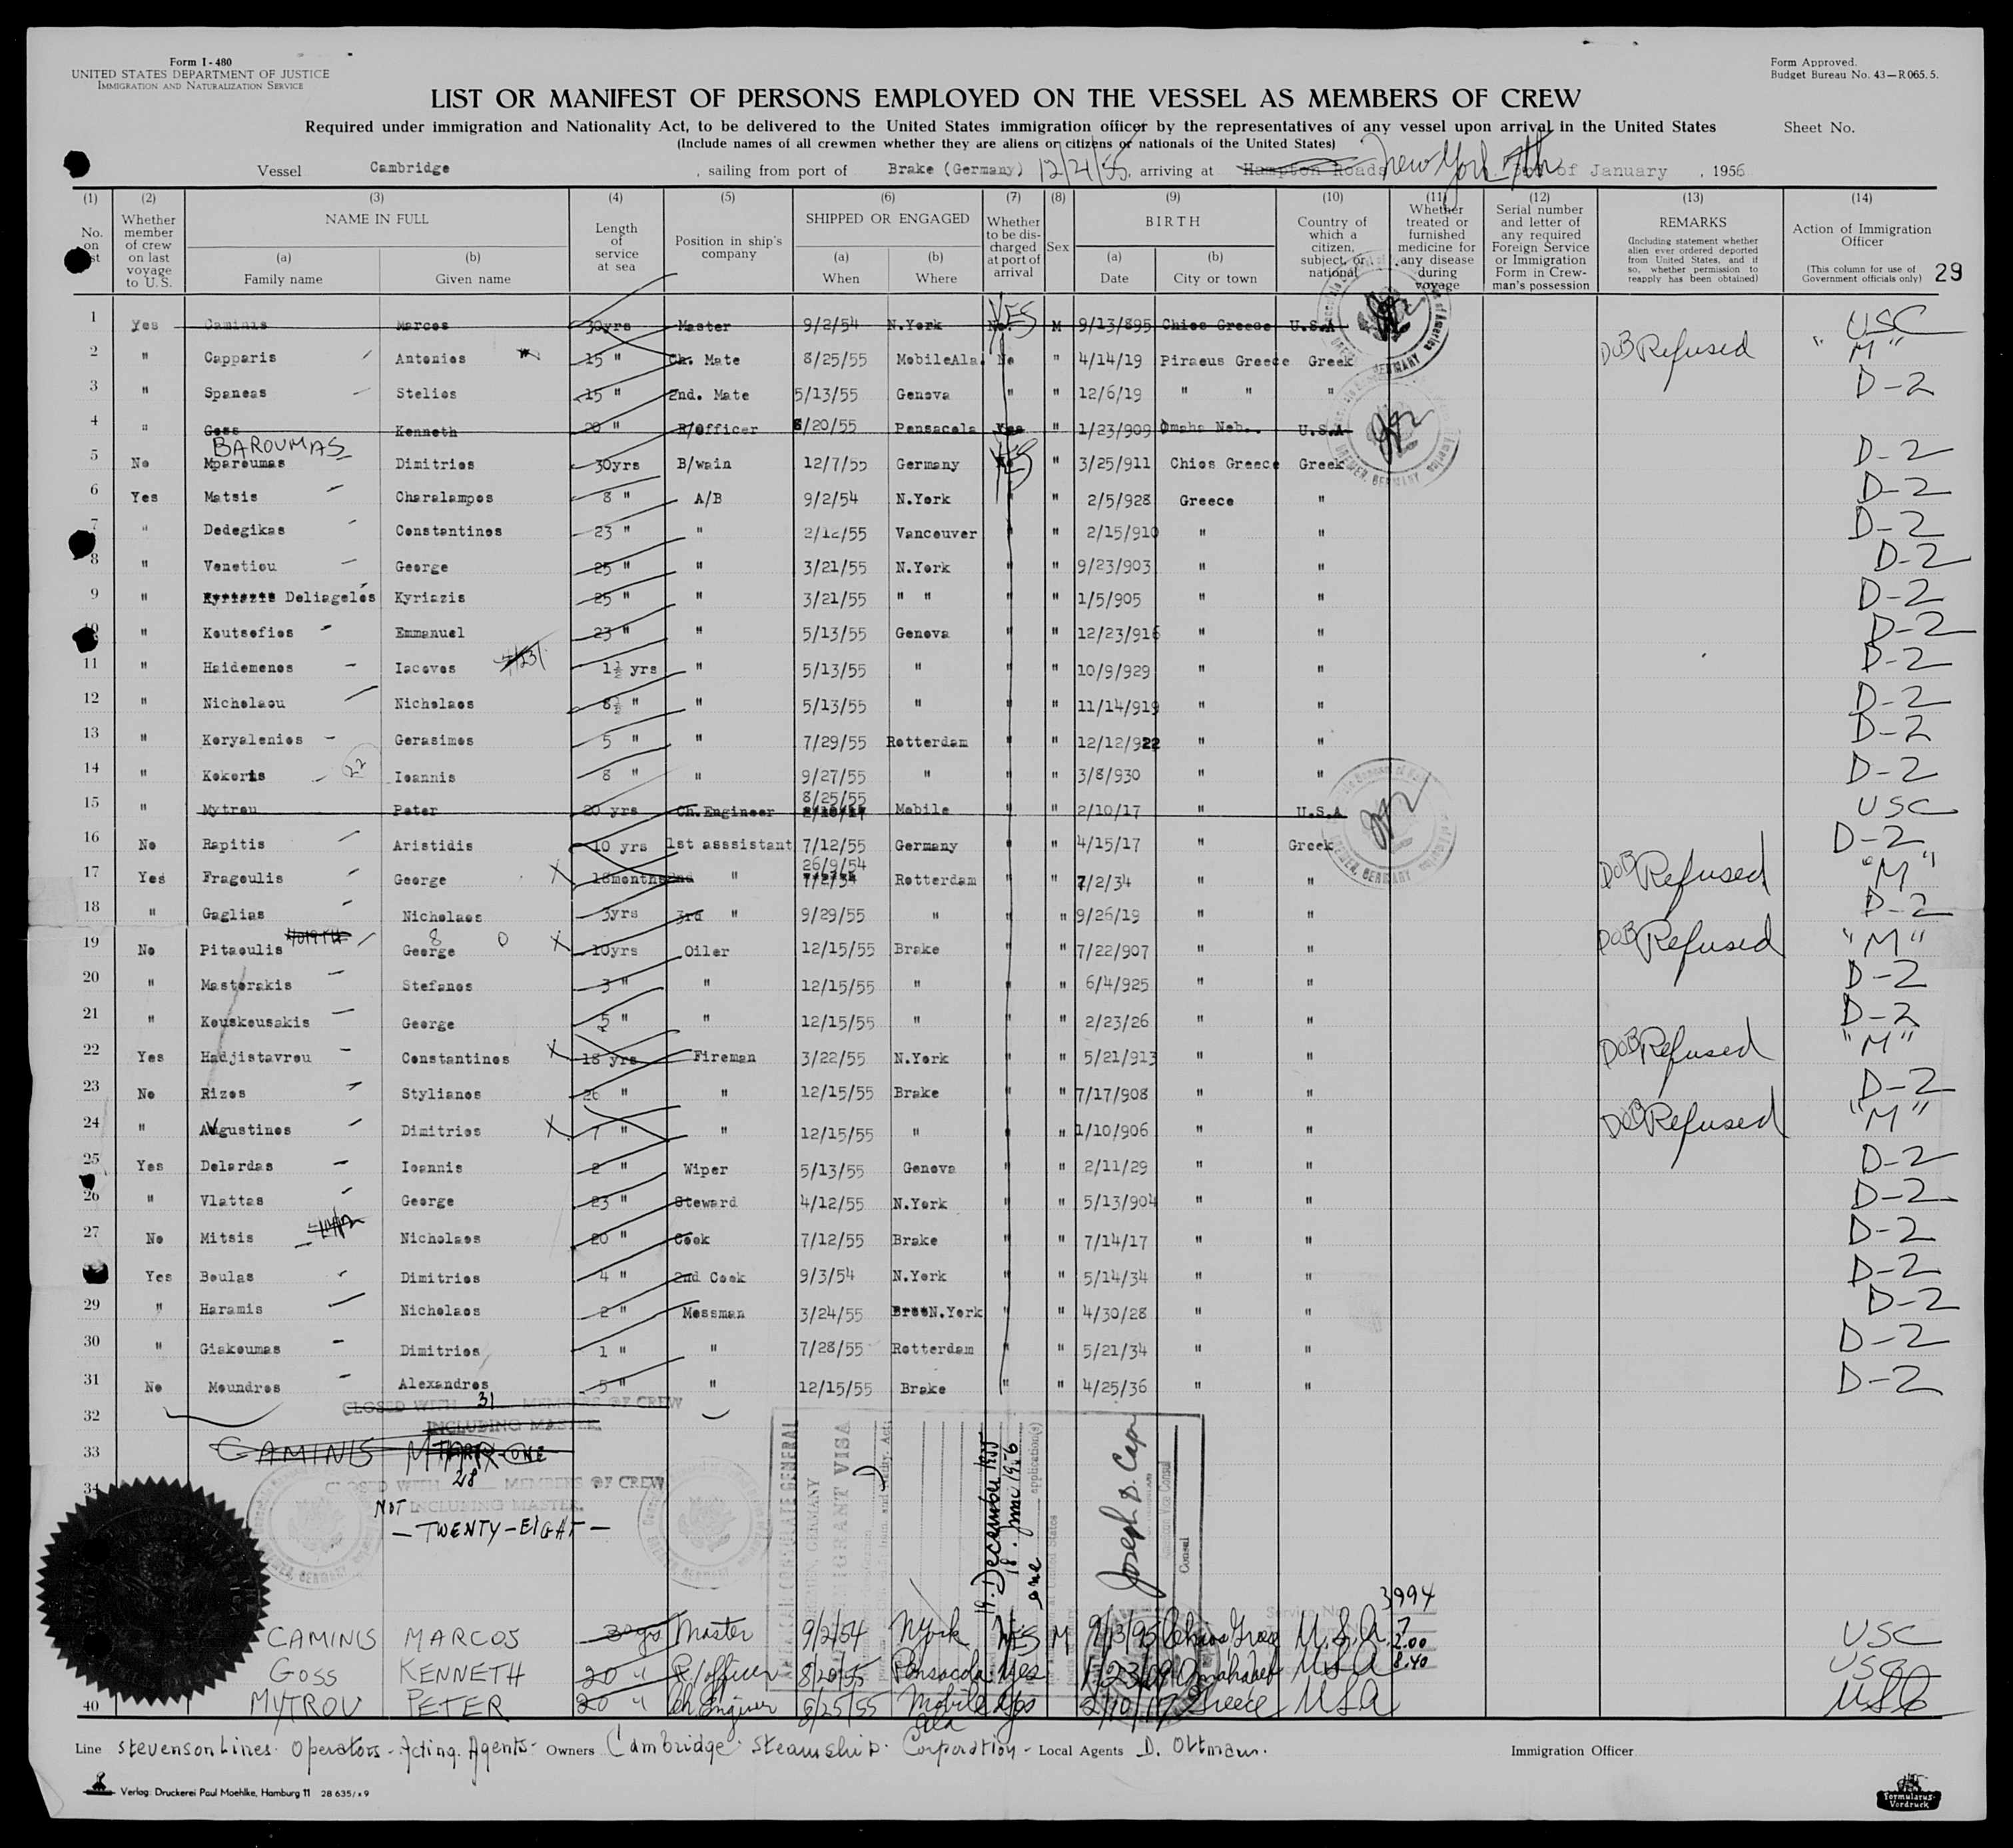 Form I-480
UNITED STATES DEPARTMENT OF JUSTICE
IMMIGRATION AND NATURALIZATION SERVICE
Form Approved.
Budget Bureau No. 43—R065.5.
LIST OR MANIFEST OF PERSONS EMPLOYED ON THE VESSEL AS MEMBERS OF CREW
Required under immigration and Nationality Act, to be delivered to the United States immigration officer by the representatives of any vessel upon arrival in the United States
Sheet No.
(Include names of all crewmen whether they are aliens or citizens or nationals of the United States)
Vessel Cambridge , sailing from port of Brake (Germany) 12/21/55, arriving at Hampton Roads New York 7th of January , 1956
(1) (2) (3) (4) (5) (6) (7) (8) (9) (10) (11) (12) (13) (14)
No. on list
Whether member of crew on last voyage to U.S.
NAME IN FULL
(a) Family name
(b) Given name
Length of service at sea
Position in ship's company
SHIPPED OR ENGAGED
(a) When
(b) Where
Whether to be discharged at port of arrival
Sex
BIRTH
(a) Date
(b) City or town
Country of which a citizen, subject, or national
Whether treated or furnished medicine for any disease during voyage
Serial number and letter of any required Foreign Service or Immigration Form in Crewman's possession
REMARKS
(Including statement whether alien ever ordered deported from United States, and if so, whether permission to reapply has been obtained)
Action of Immigration Officer
(This column for use of Government officials only) 29
1 Yes Caminis Marcos 30yrs Master 9/2/54 N.York No. YES M 9/13/895 Chios Greece U.S.A USC
2 " Capparis Antonios 15 " Ch. Mate 8/25/55 MobileAla. No " 4/14/19 Piraeus Greece Greek DOB Refused "M"
3 " Spaneas Stelios 15 " 2nd. Mate 5/13/55 Genova " " 12/6/19 " " " D-2
4 " Goss Kenneth 20 " R/Officer 8/20/55 Pensacola Yes " 1/23/909 Omaha Neb.. U.S.A
BAROUMAS
5 No Mparoumas Dimitrios 30yrs B/wain 12/7/55 Germany YES " 3/25/911 Chios Greece Greek D-2
6 Yes Matsis Charalampos 8 " A/B 9/2/54 N.York " " 2/5/928 Greece " D-2
7 " Dedegikas Constantinos 23 " " 2/12/55 Vancouver " " 2/15/910 " " D-2
8 " Venetiou George 25 " " 3/21/55 N.York " " 9/23/903 " " D-2
9 " Kyriazis Deliagelos Kyriazis 25 " " 3/21/55 " " " " 1/5/905 " " D-2
10 " Koutsofios Emmanuel 23 " " 5/13/55 Genova " " 12/23/916 " " D-2
11 " Haidemenos Iacovos 1½ yrs " 5/13/55 " " " 10/9/929 " " D-2
12 " Nicholaou Nicholaos 8½ " " 5/13/55 " " " 11/14/919 " " D-2
13 " Koryalenios Gerasimos 5 " " 7/29/55 Rotterdam " " 12/12/922 " " D-2
14 " Kokoris 22 Ioannis 8 " " 9/27/55 " " " 3/8/930 " " D-2
15 " Mytrou Peter 20 yrs Ch.Engineer 8/25/55 Mobile " " 2/10/17 " U.S.A USC
16 No Rapitis Aristidis 10 yrs 1st asssistant 7/12/55 Germany " " 4/15/17 " Greek D-2
17 Yes Fragoulis George X 18months 2nd " 26/9/54 Rotterdam " " 7/2/34 " " DOB Refused "M"
18 " Gaglias Nicholaos 3yrs 3rd " 9/29/55 " " " 9/26/19 " " D-2
19 No Pitaoulis George X 10yrs Oiler 12/15/55 Brake " " 7/22/907 " " DOB Refused "M"
20 " Mastorakis Stefanos 3 " " 12/15/55 " " " 6/4/925 " " D-2
21 " Kouskousakis George 5 " " 12/15/55 " " " 2/23/26 " " D-2
22 Yes Hadjistavrou Constantinos X 18 yrs Fireman 3/22/55 N.York " " 5/21/913 " " DOB Refused "M"
23 No Rizos Stylianos 26 " " 12/15/55 Brake " " 7/17/908 " " D-2
24 " Avgustinos Dimitrios X 7 " " 12/15/55 " " " 1/10/906 " " DOB Refused "M"
25 Yes Delardas Ioannis 2 " Wiper 5/13/55 Genova " " 2/11/29 " " D-2
26 " Vlattas George 23 " Steward 4/12/55 N.York " " 5/13/904 " " D-2
27 No Mitsis Nicholaos 20 " Cook 7/12/55 Brake " " 7/14/17 " " D-2
Yes Boulas Dimitrios 4 " 2nd Cook 9/3/54 N.York " " 5/14/34 " " D-2
29 " Haramis Nicholaos 2 " Messman 3/24/55 N.York " " 4/30/28 " " D-2
30 " Giakoumas Dimitrios 1 " " 7/28/55 Rotterdam " " 5/21/34 " " D-2
31 No Moundros Alexandros 5 " " 12/15/55 Brake " " 4/25/36 " " D-2
CLOSED WITH 31 MEMBERS OF CREW
32 INCLUDING MASTER
33 CAMINIS
34 CLOSED WITH 28 MEMBERS OF CREW
NOT INCLUDING MASTER.
— TWENTY-EIGHT —
AMERICAN CONSULATE GENERAL
BREMEN, GERMANY
IMMIGRANT VISA
19. December 1955
18. June 1956
one application(s)
Joseph D. Capo
Consul
3994
CAMINIS MARCOS 30 yrs Master 9/2/54 NYork YES M 9/13/95 Chios Greece U.S.A. 2.00 USC
GOSS KENNETH 20 " R/officer 8/20/55 Pensacola Yes 1/23/09 Omaha Neb USA 8.40 USC
40 MYTROU PETER 20 " Ch. Engineer 8/25/55 Mobile Ala Yes 2/10/17 Greece USA USC
Line Stevenson Lines. Operators - Acting. Agents - Owners Cambridge. Steamship. Corporation - Local Agents D. Oltmann. Immigration Officer
Verlag: Druckerei Paul Moehlke, Hamburg 11 28 635/x9
Formularus-Vordruck